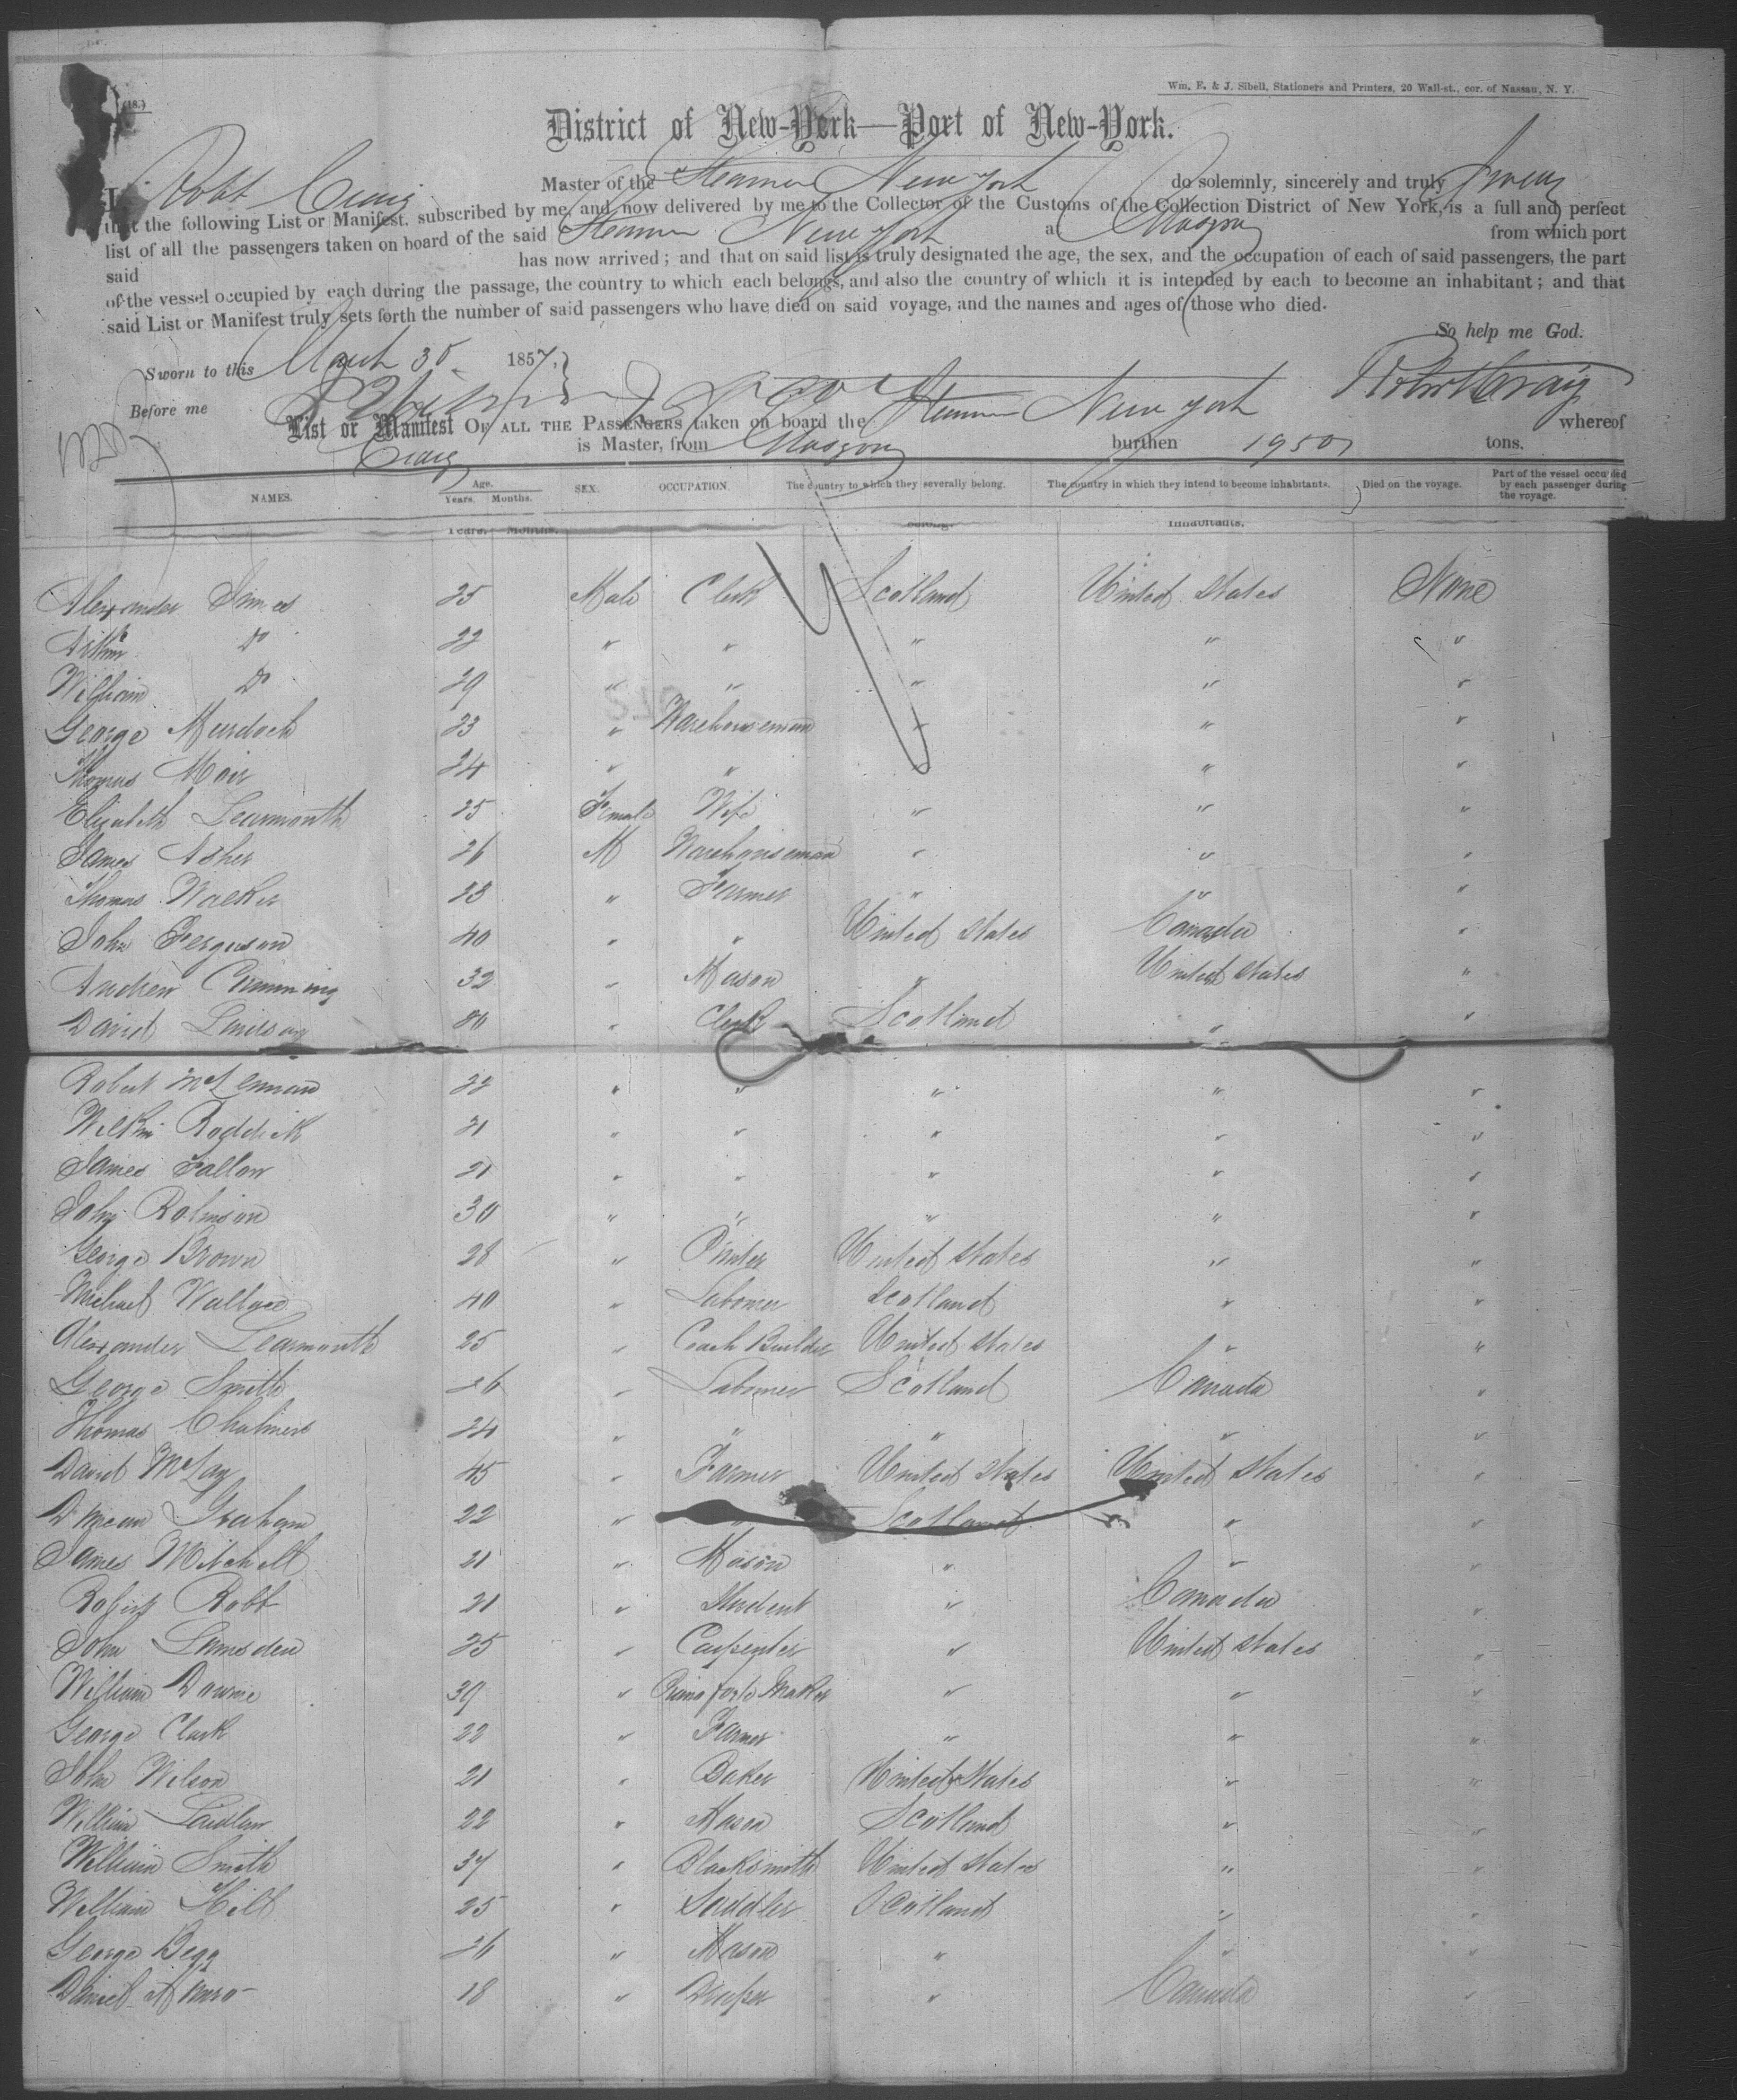 (18.)
Wm. E. & J. Sibell, Stationers and Printers, 20 Wall-st., cor. of Nassau, N. Y.
District of New-York—Port of New-York.
I, Robt Craig Master of the Steamer New York do solemnly, sincerely and truly swear
that the following List or Manifest, subscribed by me, and now delivered by me to the Collector of the Customs of the Collection District of New York, is a full and perfect
list of all the passengers taken on board of the said Steamer New York at Glasgow from which port
said has now arrived; and that on said list is truly designated the age, the sex, and the occupation of each of said passengers, the part
of the vessel occupied by each during the passage, the country to which each belongs, and also the country of which it is intended by each to become an inhabitant; and that
said List or Manifest truly sets forth the number of said passengers who have died on said voyage, and the names and ages of those who died.
So help me God.
Sworn to this March 30 1857. Robert Craig
Before me
List or Manifest OF ALL THE PASSENGERS taken on board the Steamer New York whereof
Craig is Master, from Glasgow burthen 1950 tons.
NAMES. Age. Years. Months. SEX. OCCUPATION. The country to which they severally belong. The country in which they intend to become inhabitants. Died on the voyage. Part of the vessel occupied by each passenger during the voyage.
Years. Months. belong. inhabitants.
Alexander James 25 Male Clerk Scotland United States None
Arthur Do 22 " " " " "
William Do 29 " " " " "
George Murdoch 23 " Warehouseman " " "
Thomas Moir 24 " " " " "
Elizabeth Learmonth 25 Female Wife " " "
James Asher 26 M Warehouseman " " "
Thomas Walker 23 " Farmer " " "
John Ferguson 40 " " United States Canada "
Andrew Cumming 32 " Mason " United States "
David Lindsay " Clerk Scotland " "
Robert McLennan 22 " " " " "
Roddick 21 " " " " "
James Fallow 21 " " " " "
John Robinson 30 " " " " "
George Brown 28 " Printer United States " "
Michael Wallace 40 " Labourer Scotland " "
Alexander Learmonth 25 " Coach Builder United States " "
George Smith 26 " Labourer Scotland Canada "
Thomas Chalmers 24 " " " " "
David McLay 45 " Farmer United States United States "
Duncan Graham 22 " " Scotland " "
James Mitchell 21 " Mason " " "
Robert Robb 21 " Student " Canada "
John Lumsden 25 " Carpenter " United States "
William Downie 39 " Piano forte Maker " " "
George Clark 22 " Farmer " " "
John Wilson 21 " Baker United States " "
William Laidlaw 22 " Mason Scotland " "
William Smith 37 " Blacksmith United States " "
William Hill 25 " Saddler Scotland " "
George Begg 26 " Mason " " "
Daniel Munro 18 " Draper " Canada "